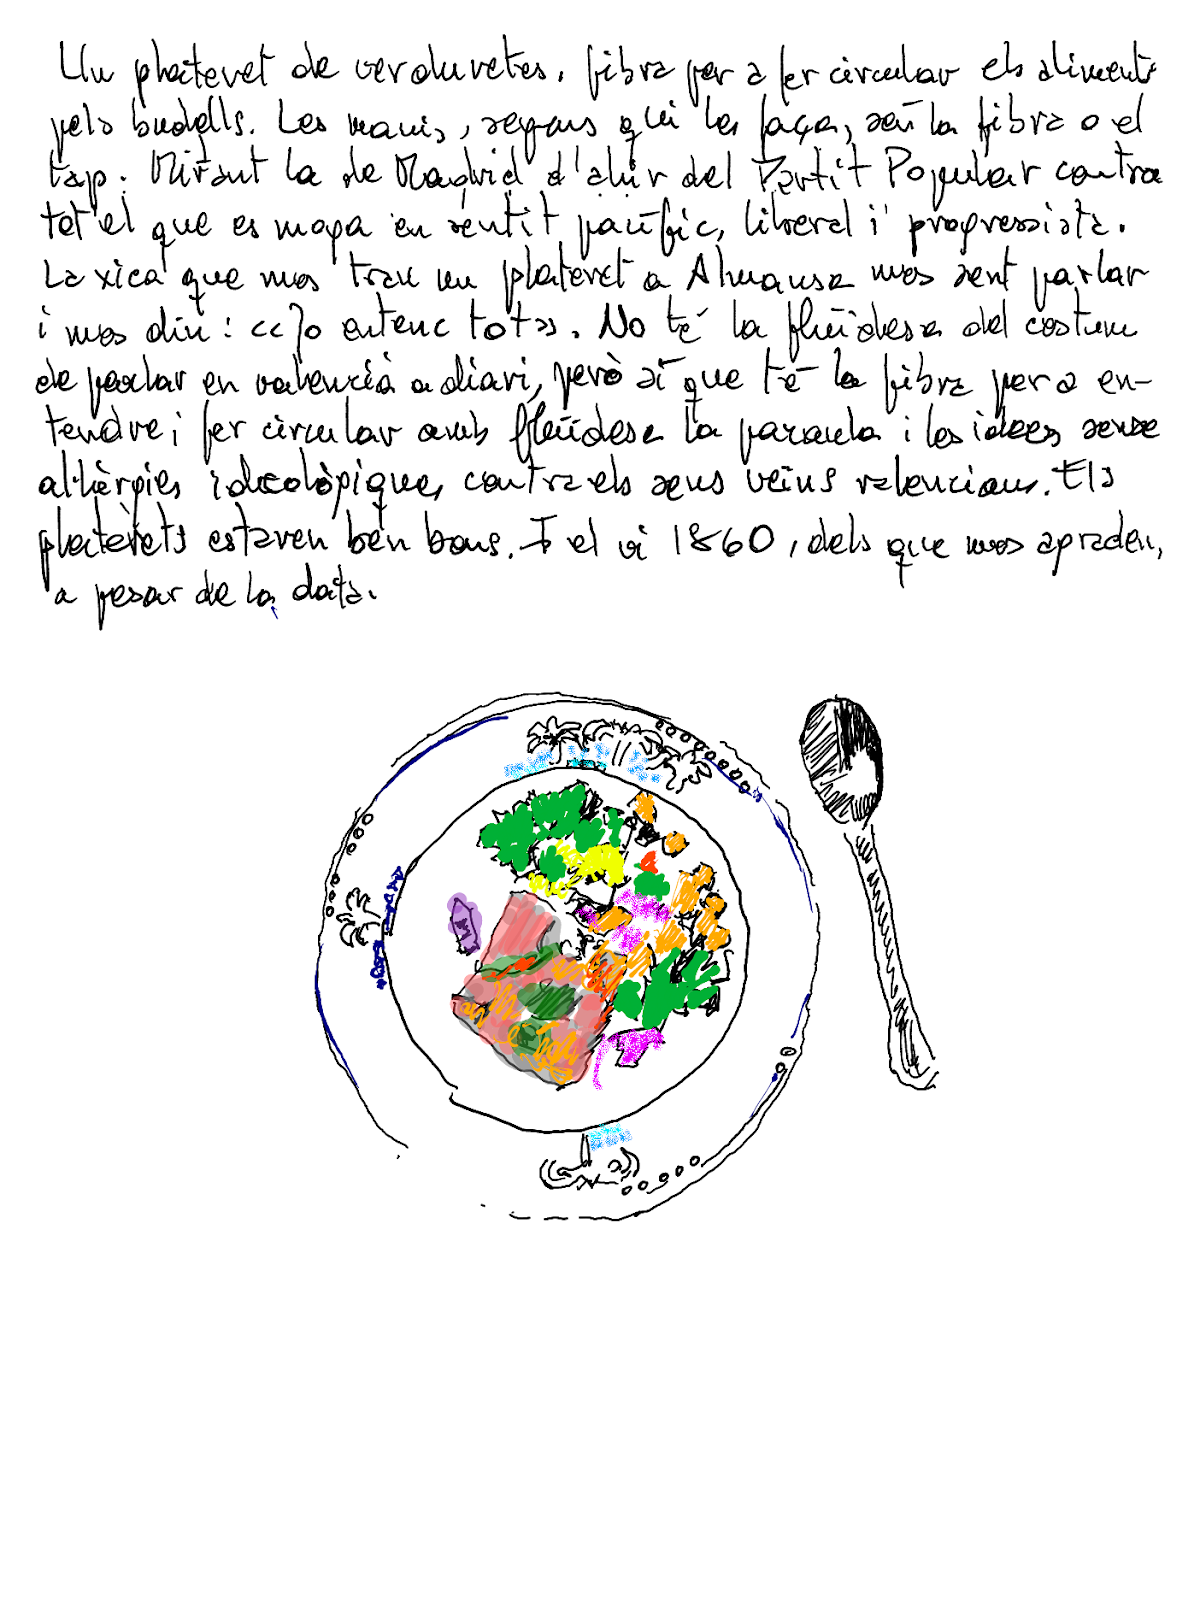 Un plateret de verduretes, fibra per a fer circular els aliments
pels budells. Les manis, segons qui les faça, són la fibra o el
tap. Mirant la de Madrid d'ahir del Partit Popular contra
tot el que es moga en sentit pacífic, liberal i progressista.
La xica que mos trau un plateret a Almansa mos sent parlar
i mos diu: "Jo entenc tot". No té la fluïdesa del costum
de parlar en valencià a diari, però sí que té la fibra per a en-
tendre i fer circular amb fluïdesa la paraula i les idees sense
al·lèrgies ideològiques contra els seus veïns valencians. Els
platerets estaven ben bons. I el vi 1860, dels que mos agraden,
a pesar de la data.